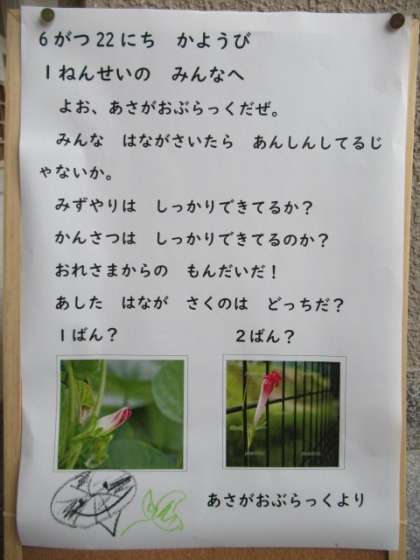 6がつ22にち　かようび
1ねんせいの　みんなへ
よお、あさがおぶらっくだぜ。
みんな　はながさいたら　あんしんしてるじ
ゃないか。
みずやりは　しっかりできてるか？
かんさつは　しっかりできてるのか？
おれさまからの　もんだいだ！
あした　はなが　さくのは　どっちだ？
1ばん？　2ばん？
あさがおぶらっくより